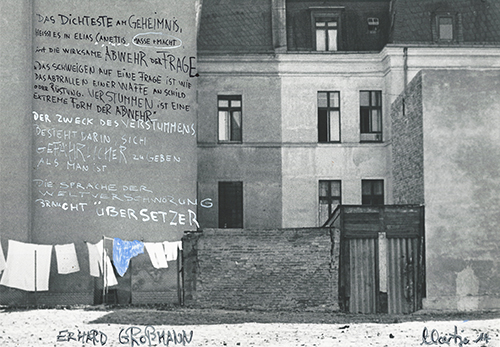 DAS DICHTESTE AM GEHEIMNIS,
HEISST ES IN ELIAS CANETTIS "MASSE+MACHT"
IST DIE WIRKSAME ABWEHR DER FRAGE.
DAS SCHWEIGEN AUF EINE FRAGE IST WIE
DAS ABPRALLEN EINER WAFFE AN SCHILD
ODER RÜSTUNG. VERSTUMMEN IST EINE
EXTREME FORM DER ABWEHR."
DER ZWECK DES VERSTUMMENS
BESTEHT DARIN, SICH
GEFÄHRLICHER ZU GEBEN
ALS MAN IST
DIE SPRACHE DER
WELTVERSCHWÖRUNG
BRAUCHT ÜBERSETZER
ERHARD GROßMANN